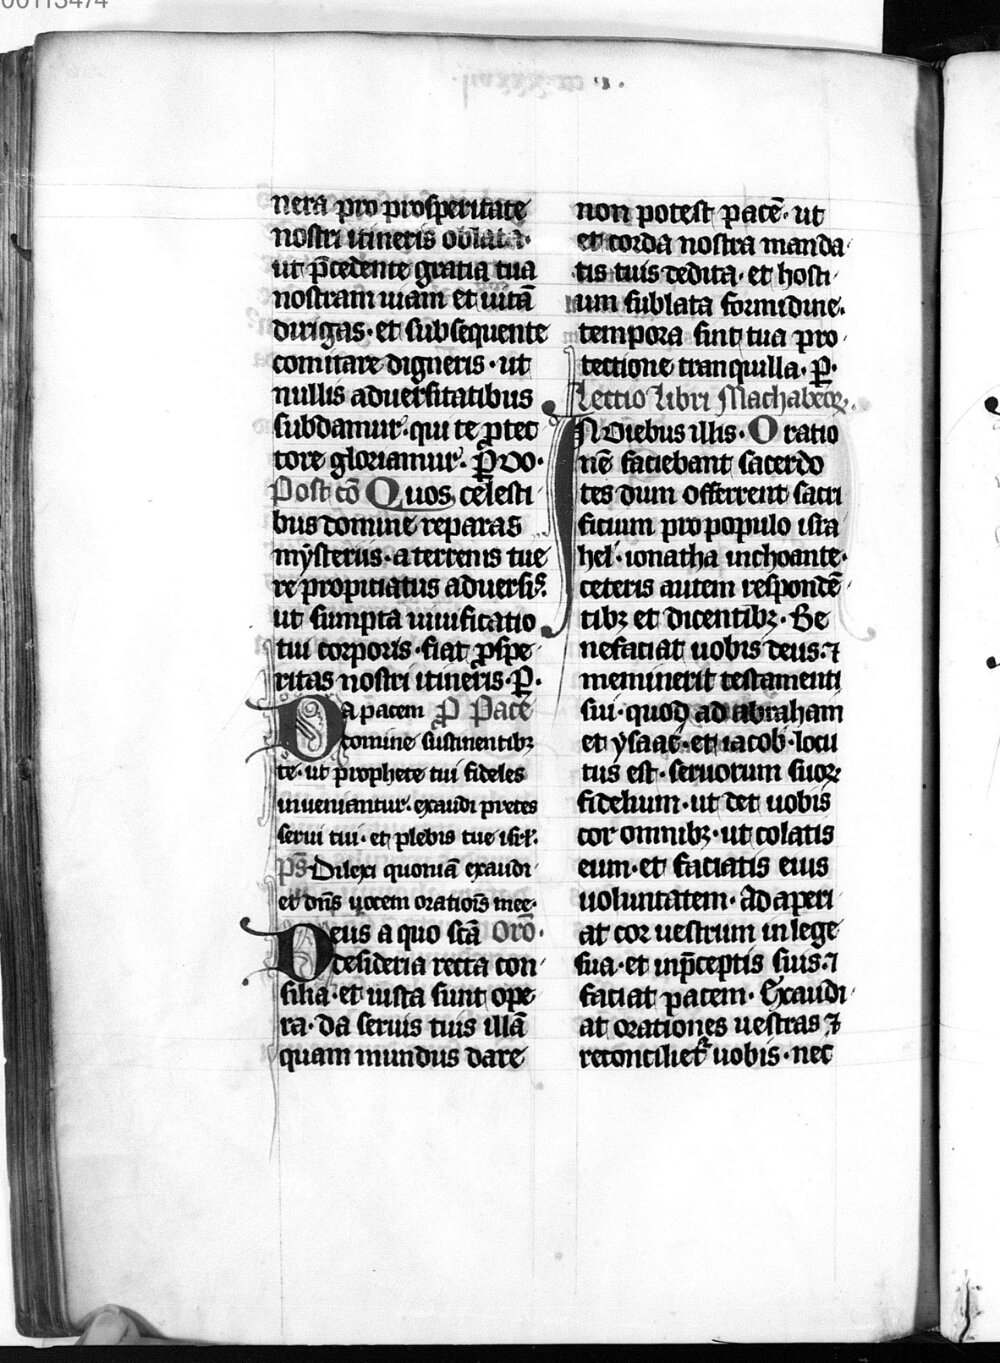 00113474
nera pro prosperitate
nostri itineris oblata·
ut p̄cedente gratia tua
nostram uiam et uitā
dirigas· et subsequente
comitare digneris· ut
nullis aduersitatibus
subdamur: qui te ꝓtec
tore gloriamur. P̄ do·
Post cō Quos celesti
bus domine reparas
mysteriis· a terrenis tue
re propitiatus aduersis.
ut sumpta uiuificatio
tui corporis· fiat ꝓspe
ritas nostri itineris· P̄.
Da pacem P̄ Pacē
domine sustinentibꝫ
te· ut prophete tui fideles
inueniantur· exaudi preces
serui tui· et plebis tue isrl̄.
p̄s Dilexi quoniā exaudi
et dn̄s uocem orationis mee·
Deus a quo scā Orō·
desideria recta con
silia· et iusta sunt ope
ra· da seruis tuis illā
quam mundus dare
non potest pacē· ut
et corda nostra manda
tis tuis dedita· et hosti
um sublata formidine·
tempora sint tua pro
tectione tranquilla. P̄·
Lectio libri Machabeoꝝ.
IN diebus illis· Oratio
nē faciebant sacerdo
tes dum offerrent sacri
ficium pro populo isra
hel· ionatha inchoante·
ceteris autem respondē
tibꝫ et dicentibꝫ· Be
nefaciat uobis deus: ⁊
meminerit testamenti
sui· quod ad abraham
et ysaac· et iacob· locu
tus est· seruorum suoꝝ
fidelium· ut det uobis
cor omnibꝫ· ut colatis
eum· et faciatis eius
uoluntatem· Adaperi
at cor uestrum in lege
sua· et in p̄ceptis suis: ⁊
faciat pacem· Exaudi
at orationes uestras ⁊
reconcilietꝛ uobis· nec